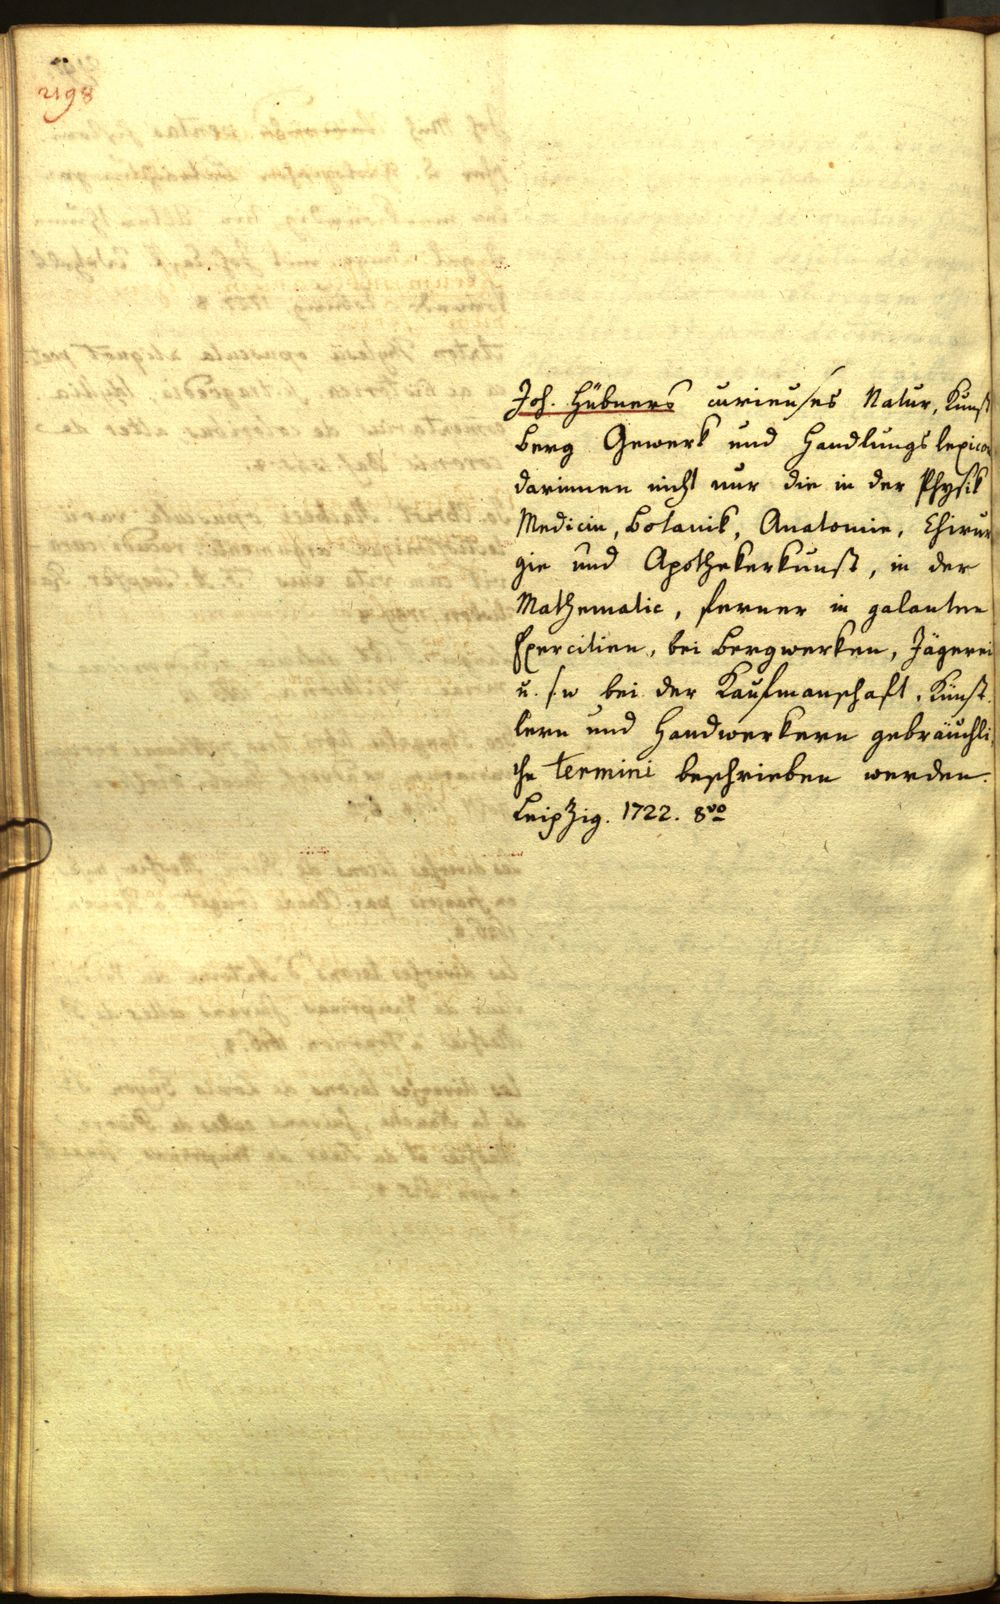 2198
Joh. Hübners curieuses Natur, Kunst
Berg Gewerk und Handlungs lexicon
darinnen nicht nur die in der Physik
Medicin, Botanik, Anatomie, Chirur
gie und Apothekerkunst, in der
Mathematic, ferner in galanten
Exercitien, bei Bergwerken, Jägerei
u. s. w bei der Kaufmanschaft, Künst
lern und Handwerkern gebräuchli
che termini beschrieben werden.
Leipzig. 1722. 8vo